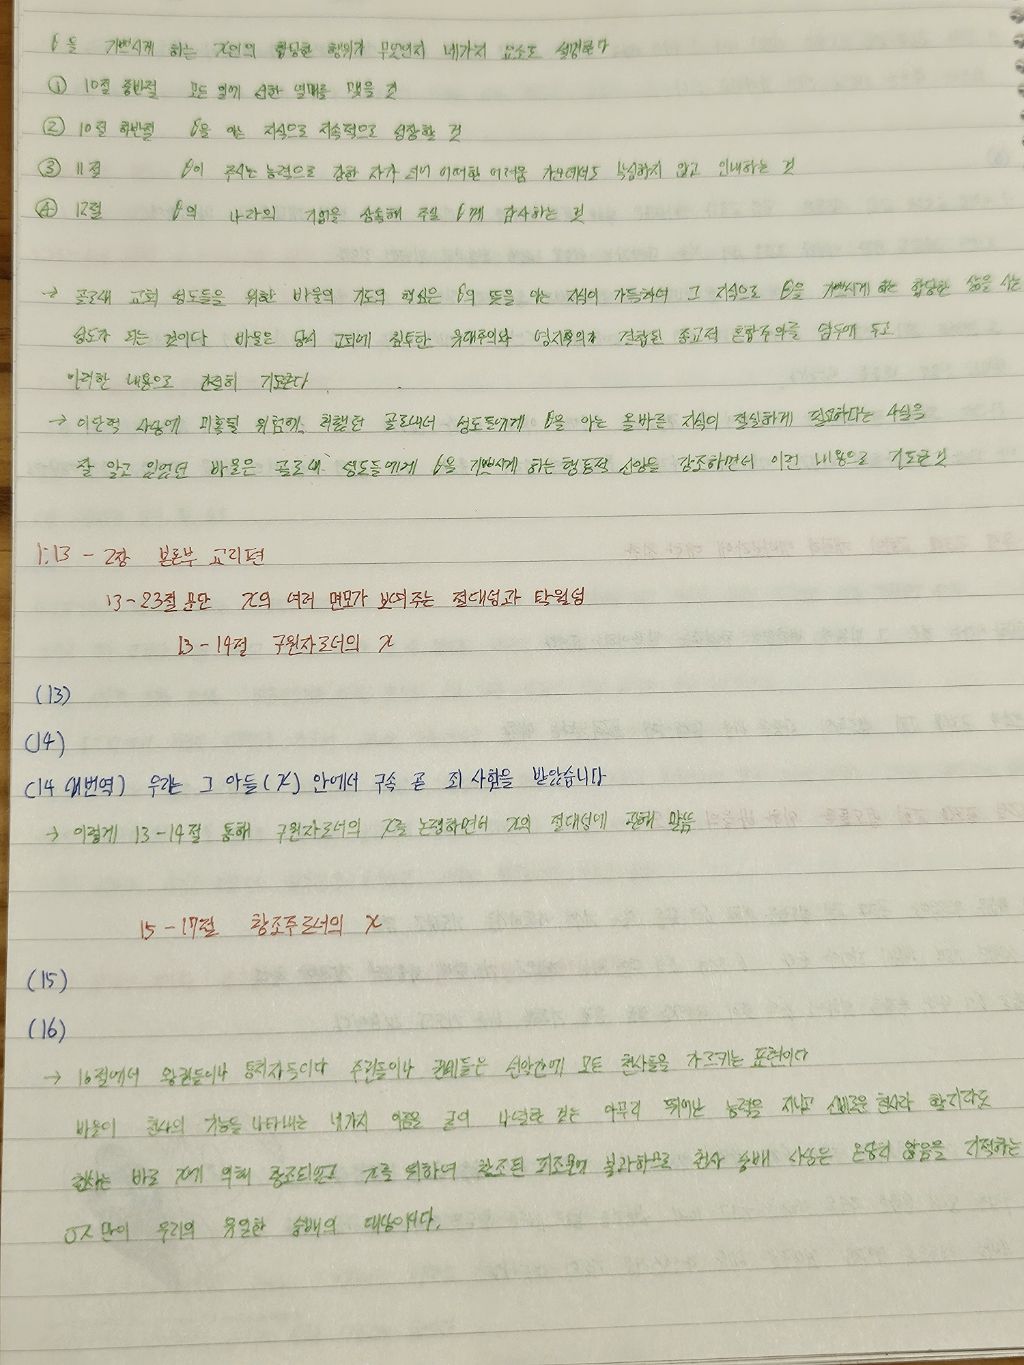 θ을 기쁘시게 하는 X인의 합당한 행위가 무엇인지 네가지 요소로 설명한다
① 10절 중반절 모든 일에 선한 열매를 맺을 것
② 10절 하반절 θ을 아는 지식으로 지속적으로 성장할 것
③ 11절 θ이 주시는 능력으로 강한 자가 되어 어떠한 어려움 가운데서도 낙심하지 않고 인내하는 것
④ 12절 θ의 나라의 기업을 상속해 주실 θ께 감사하는 것
→ 골로새 교회 성도들을 위한 바울의 기도의 핵심은 θ의 뜻을 아는 지식이 가득하여 그 지식으로 θ을 기쁘시게 하는 합당한 삶을 사는
성도가 되는 것이다 바울은 당시 교회에 침투한 유대주의와 영지주의가 결합된 종교적 혼합주의를 염두에 두고
이러한 내용으로 간절히 기도한다
→ 이단적 사상에 미혹될 위험에 처했던 골로새서 성도들에게 θ을 아는 올바른 지식이 절실하게 필요하다는 사실을
잘 알고 있었던 바울은 골로새 성도들에게 θ을 기쁘시게 하는 행동적 신앙을 강조하면서 이런 내용으로 기도한 것
1:13 - 2장 본론부 교리편
13-23절 문단 X의 여러 면모가 보여주는 절대성과 탁월성
13-14절 구원자로서의 X
(13)
(14)
(14 새번역) 우리는 그 아들(X) 안에서 구속 곧 죄 사함을 받았습니다
→ 이렇게 13-14절 통해 구원자로서의 X를 논점하면서 X의 절대성에 관해 말씀
15-17절 창조주로서의 X
(15)
(16)
→ 16절에서 왕권들이나 통치자들이나 주권들이나 권세들은 신약안에 모두 천사들을 가르키는 표현이다
바울이 천사의 기능을 나타내는 네가지 이름을 굳이 나열한 것은 아무리 뛰어난 능력을 지니고 신비로운 천사라 할지라도
천사는 바로 X에 의해 창조되었고 X를 위하여 창조된 피조물에 불과하므로 천사 숭배 사상은 온당치 않음을 지적하는
오직 만이 우리의 유일한 숭배의 대상이시다.